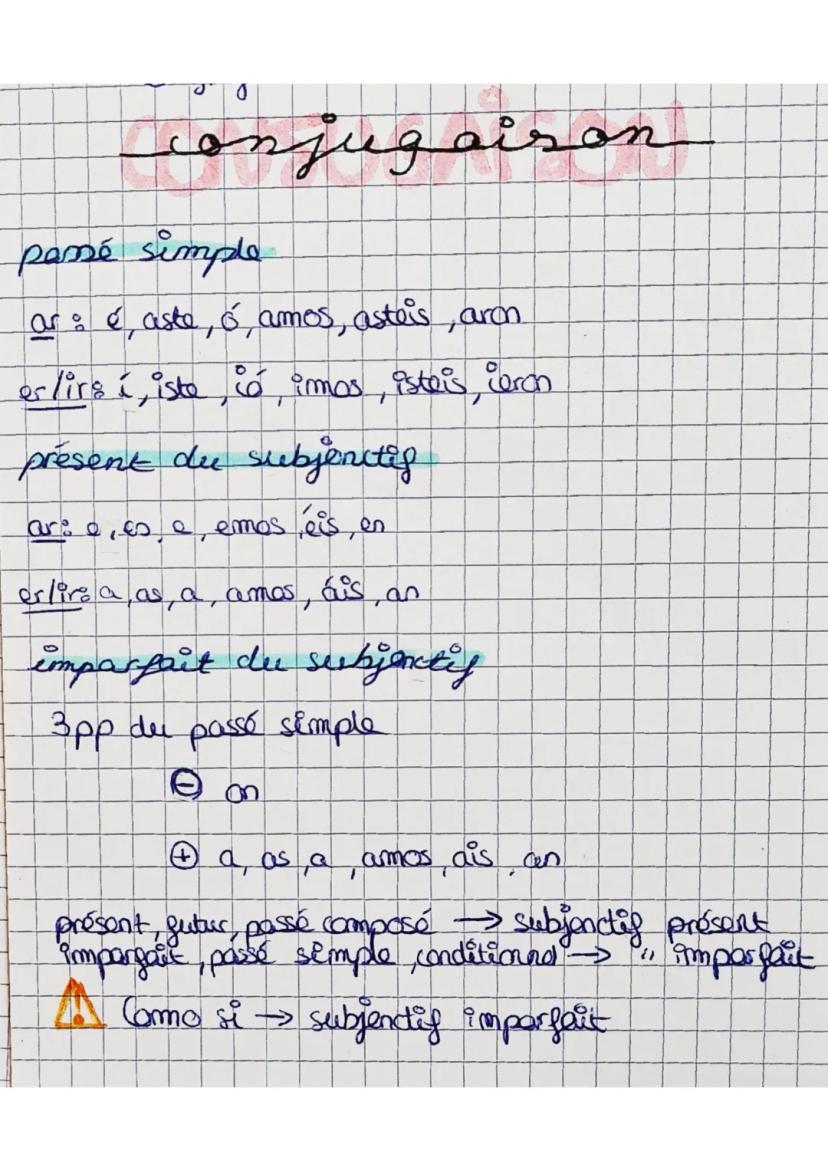 CONJUGAISON
conjugaison
passé simple
ar : é, aste, ó, amos, asteis, aron
er/ir : í, iste, ió, imos, isteis, ieron
présent du subjonctif
ar : e, es, e, emos, éis, en
er/ir : a, as, a, amos, áis, an
imparfait du subjonctif
3pp du passé simple
⊖ on
⊕ a, as, a, amos, ais, an
présent, futur, passé composé → subjonctif présent
imparfait, passé simple, conditionnel → " imparfait
⚠ Como si → subjonctif imparfait